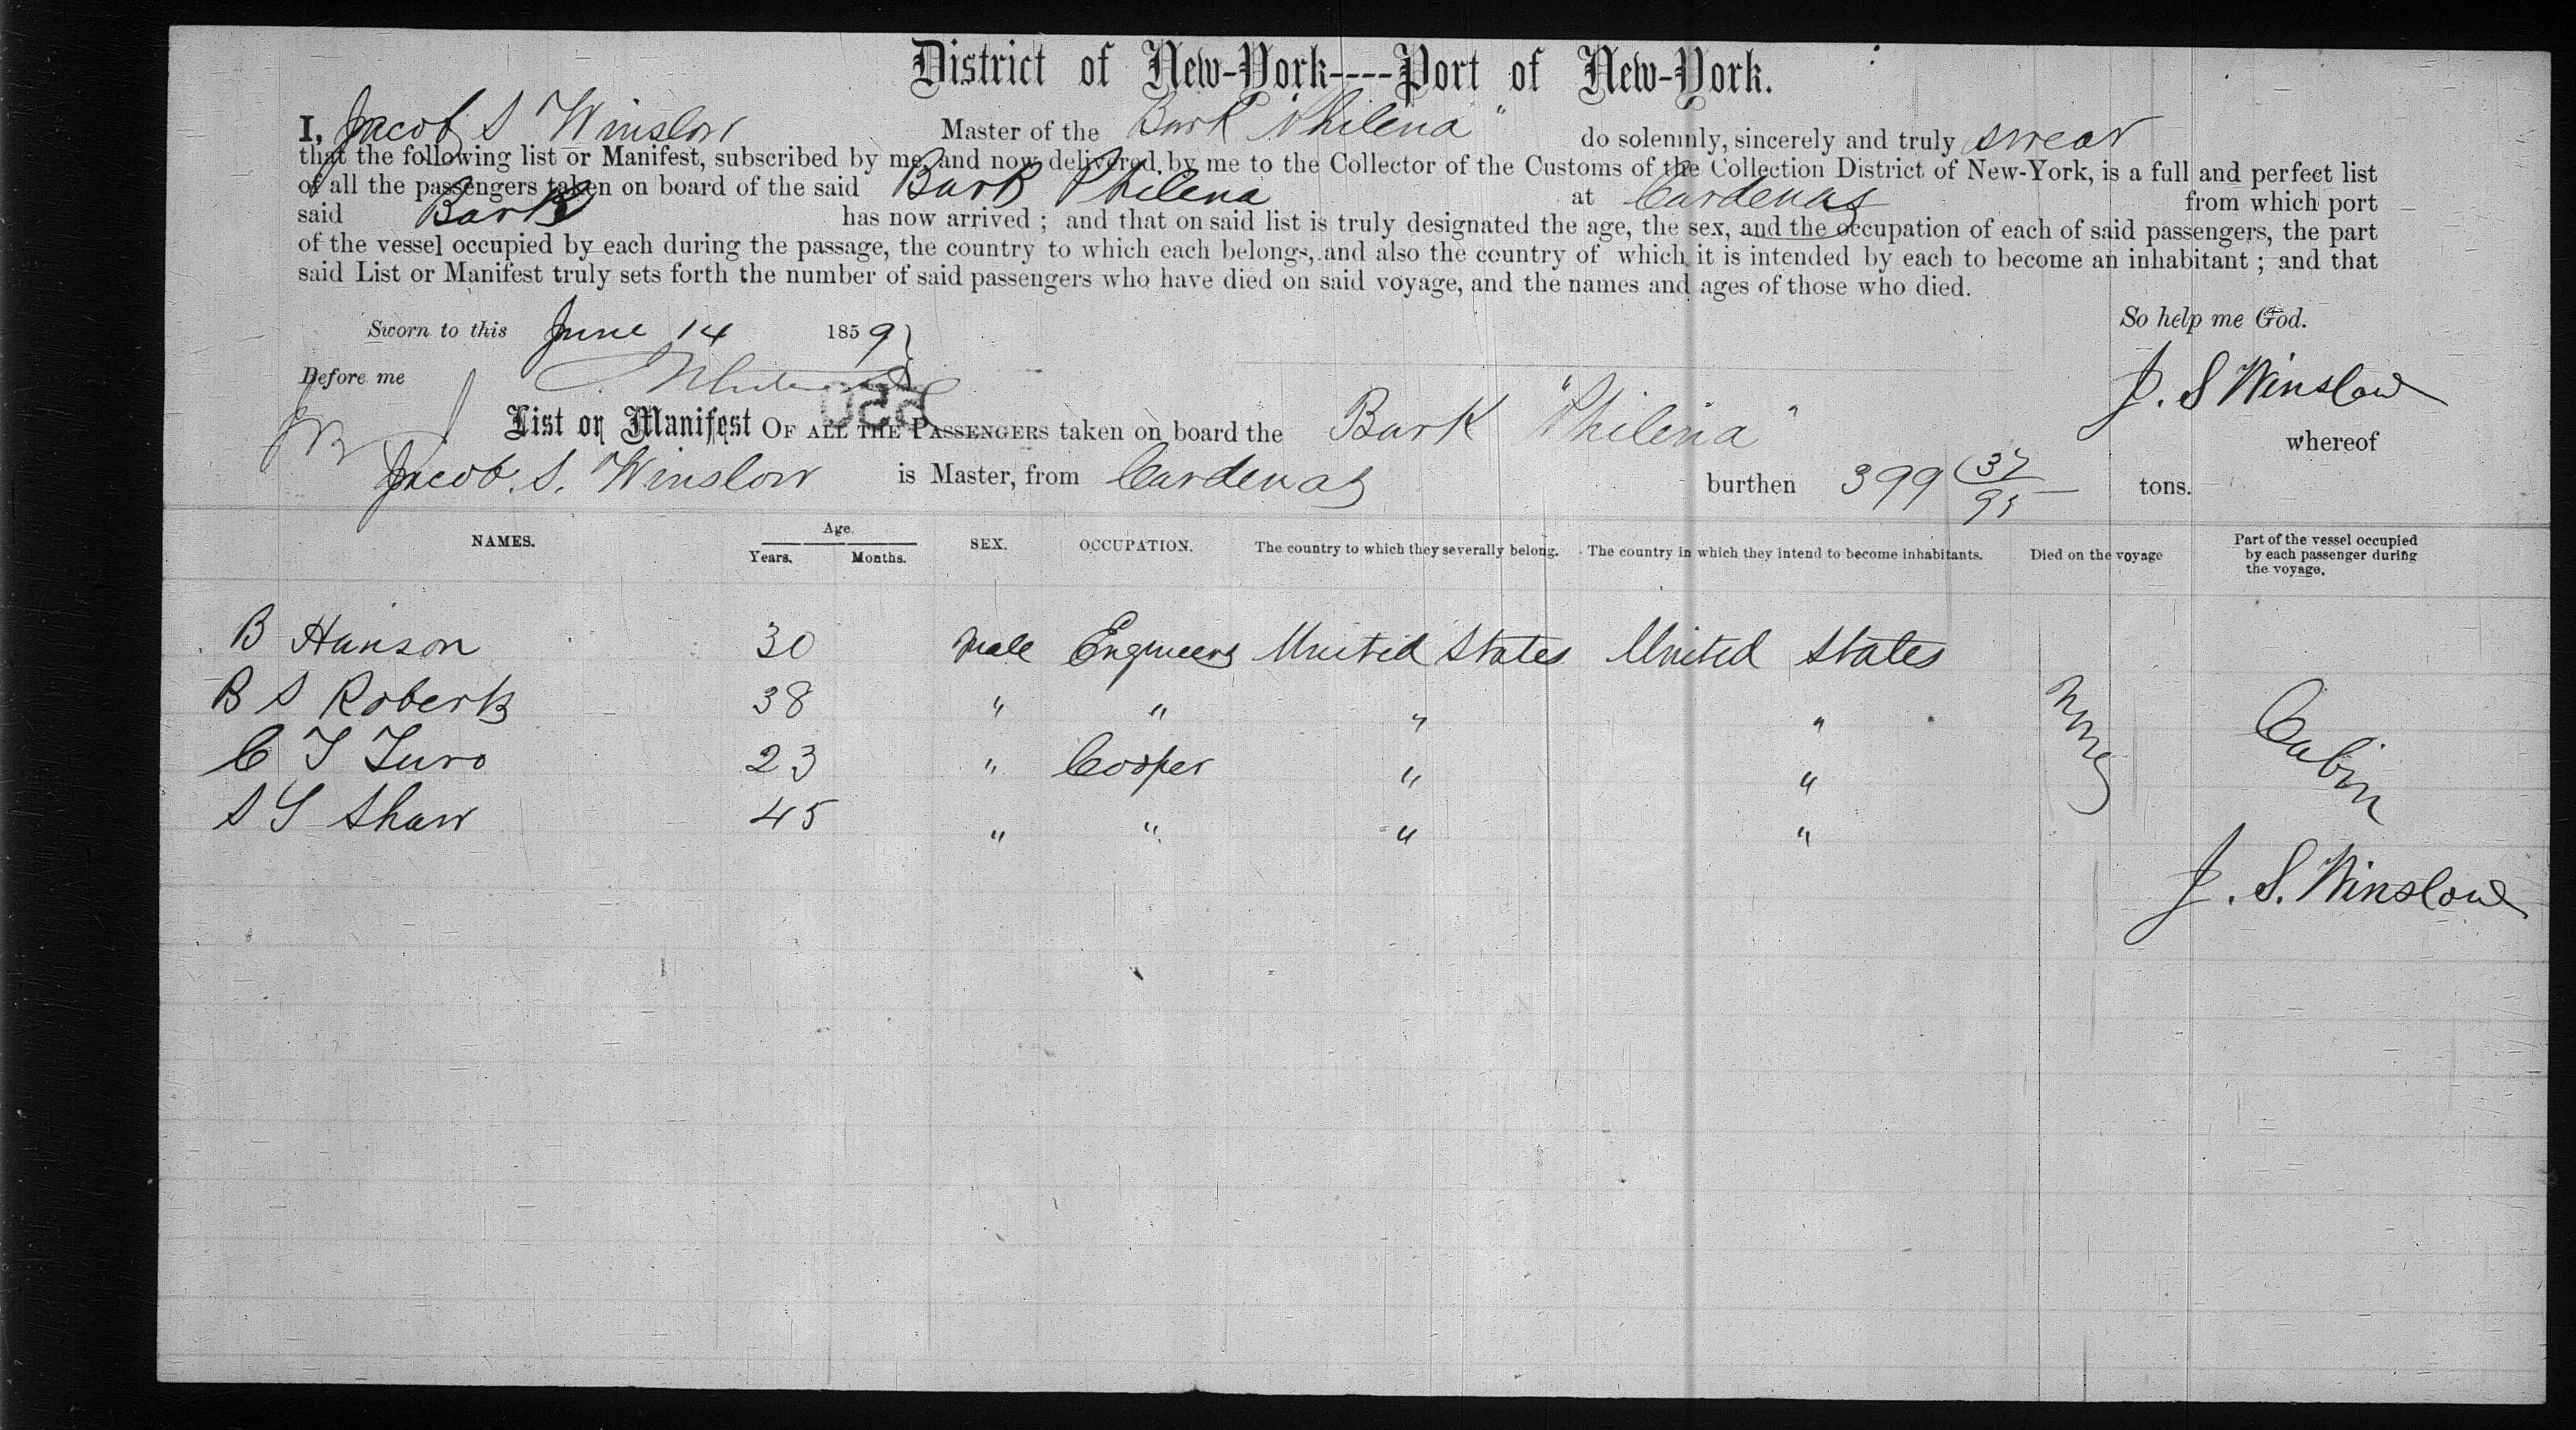 District of New-York----Port of New-York.
I, Jacob S Winslow Master of the Bark "Philena" do solemnly, sincerely and truly swear
that the following list or Manifest, subscribed by me, and now delivered by me to the Collector of the Customs of the Collection District of New-York, is a full and perfect list
of all the passengers taken on board of the said Bark Philena at Cardenas from which port
said Bark has now arrived ; and that on said list is truly designated the age, the sex, and the occupation of each of said passengers, the part
of the vessel occupied by each during the passage, the country to which each belongs, and also the country of which it is intended by each to become an inhabitant ; and that
said List or Manifest truly sets forth the number of said passengers who have died on said voyage, and the names and ages of those who died.
So help me God.
Sworn to this June 14 1859
Before me
J. S Winslow
List or Manifest OF ALL THE PASSENGERS taken on board the Bark "Philena" whereof
Jacob. S. Winslow is Master, from Cardenas burthen 399 37/95 tons.
NAMES. Age. Years. Months. SEX. OCCUPATION. The country to which they severally belong. The country in which they intend to become inhabitants. Died on the voyage Part of the vessel occupied by each passenger during the voyage.
B Hanson 30 Male Engineers United States United States
B S Roberts 38 " " " "
C T 23 " Cooper " "
S S Shaw 45 " " " "
None
Cabin
J. S. Winslow